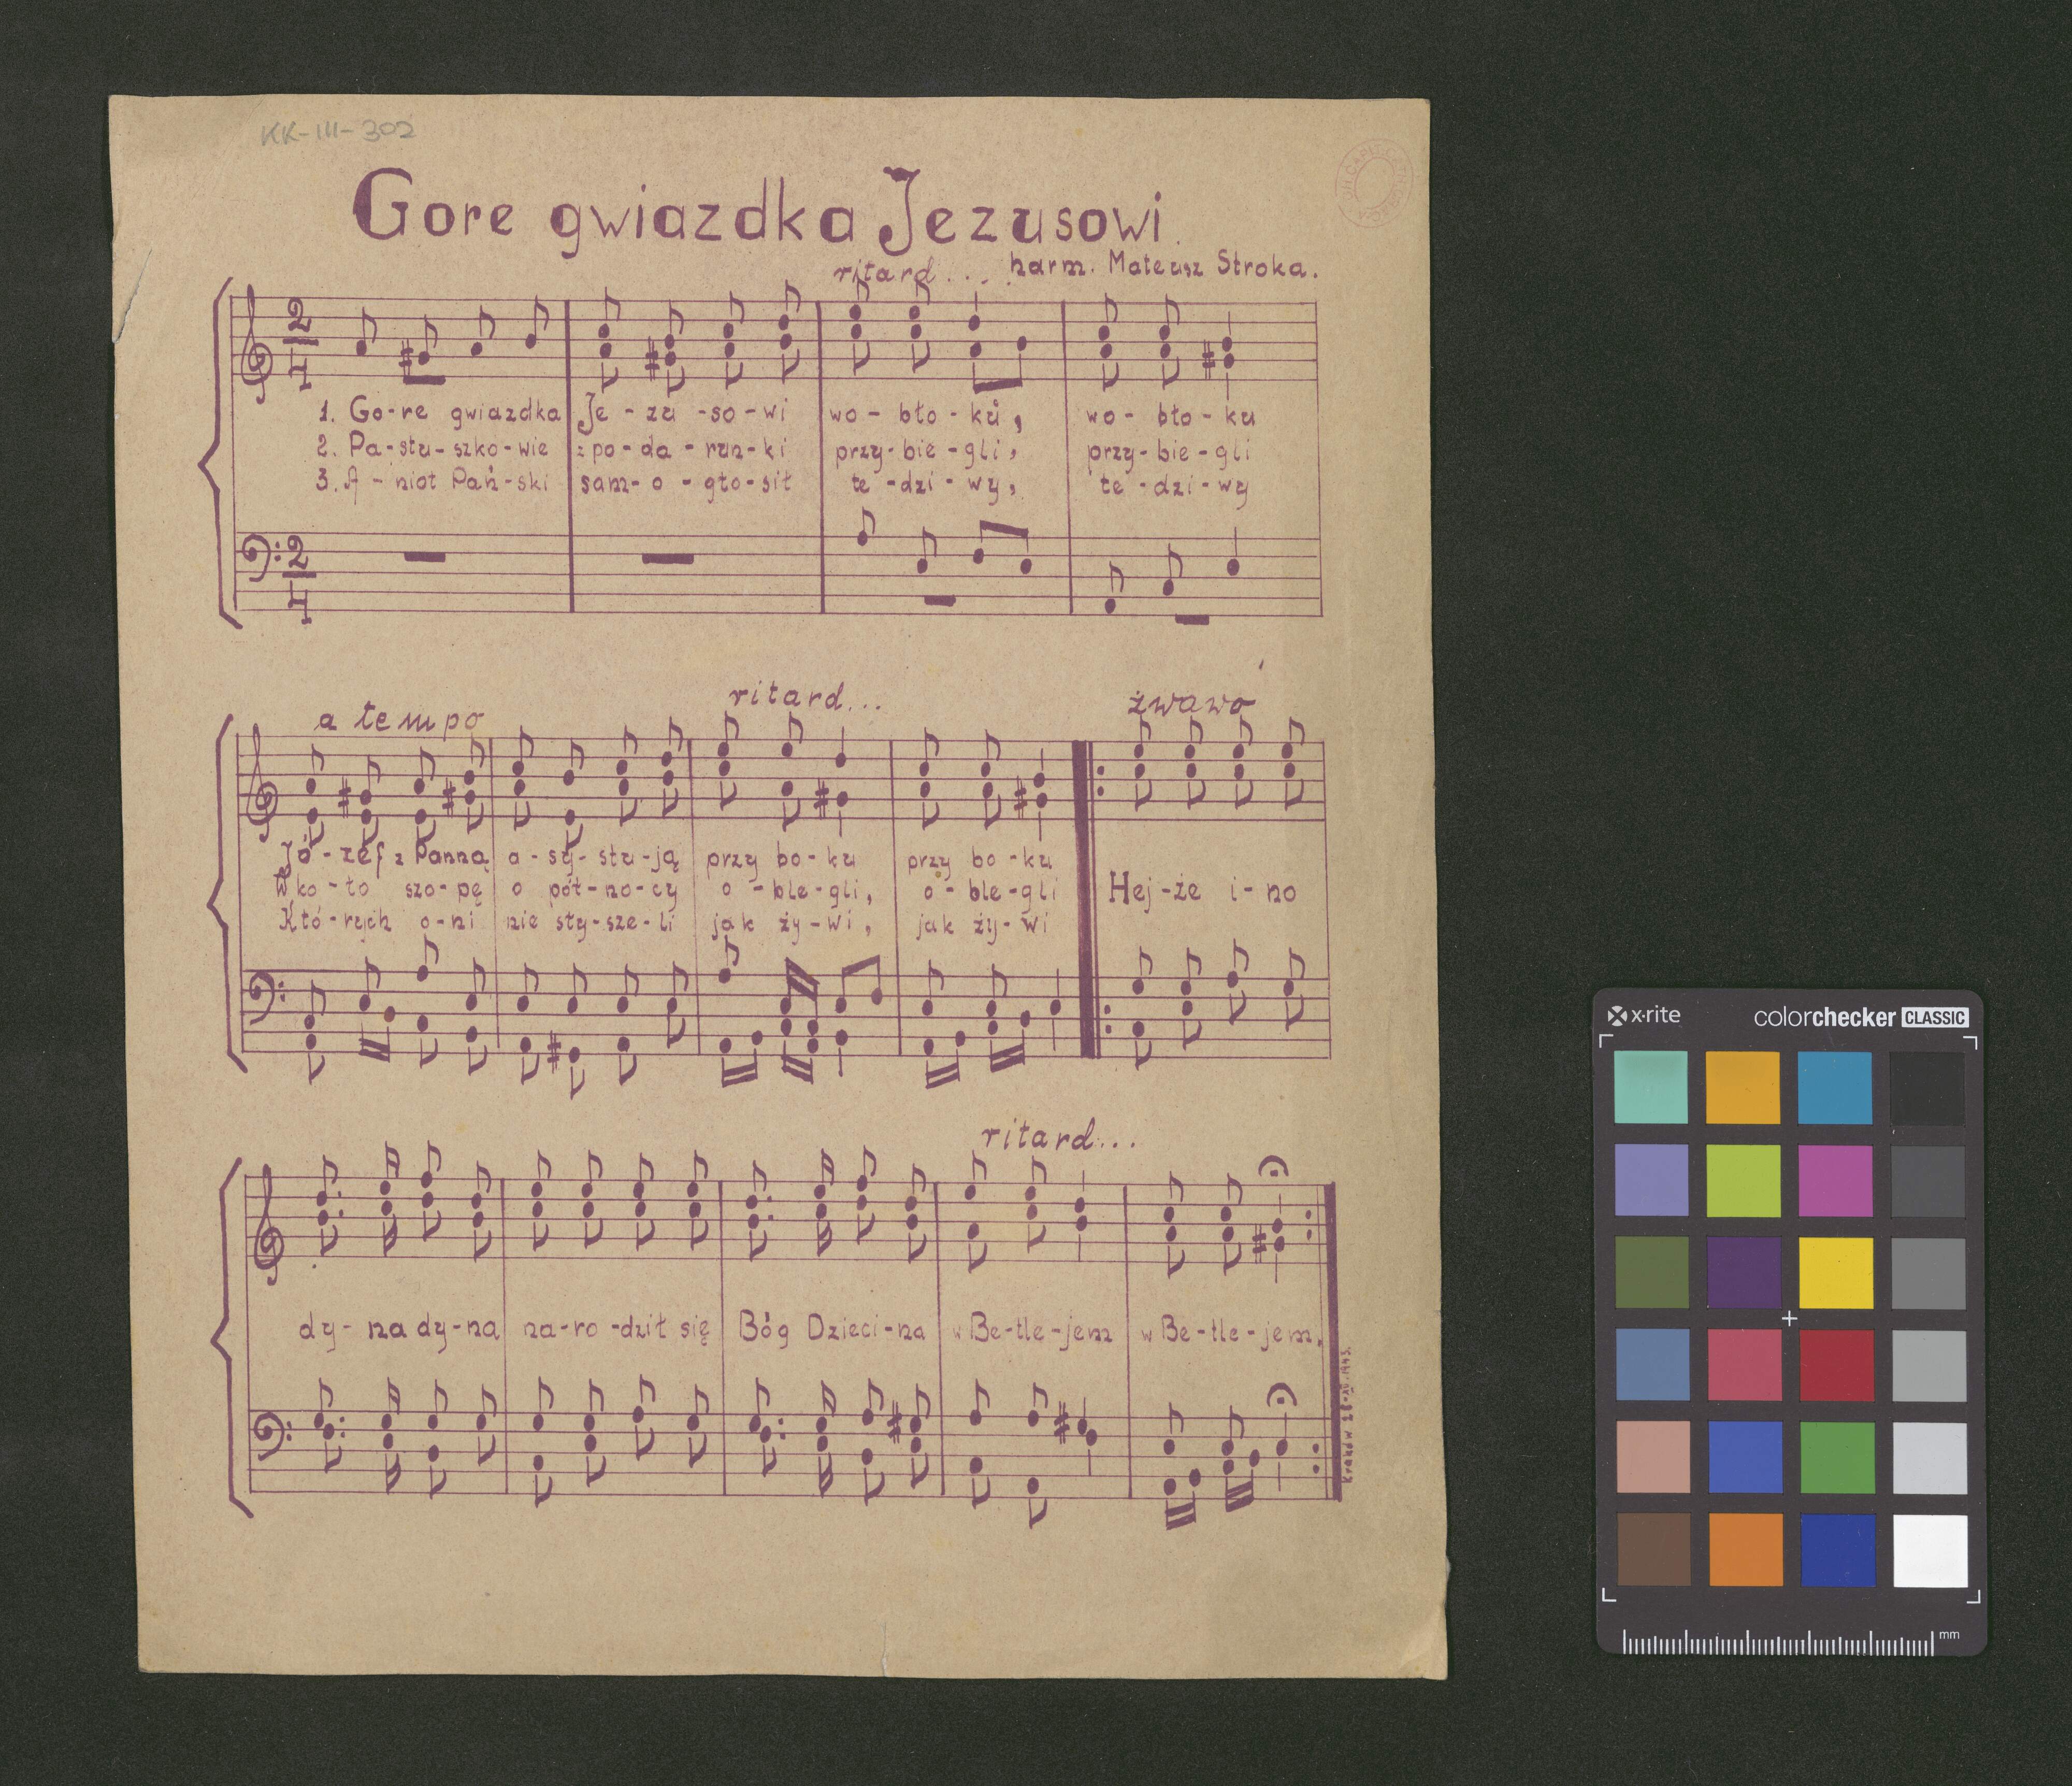 KK-III-302
Gore gwiazdka Jezusowi.
ritard... harm. Mateusz Stroka.
2
4
1. Go-re gwiazdka Je-zu-so-wi wo-bło-ku, wo-bło-ku
2. Pa-stu-szko-wie z po-da-run-ki przy-bie-gli, przy-bie-gli
3. A-nioł Pań-ski sam-o-gło-sił te-dzi-wy, te-dzi-wy
2
4
a tempo ritard... żwawo
Jó-zef z Panną a-sy-stu-ją przy bo-ku przy bo-ku
Wko-ło szo-pę o pół-no-cy o-ble-gli, o-ble-gli Hej-że i-no
Któ-rych o-ni nie sły-sze-li jak ży-wi, jak ży-wi
ritard...
dy-na dy-na na-ro-dził się Bóg Dzieci-na w Be-tle-jem w Be-tle-jem.
Kraków
x·rite colorchecker CLASSIC
mm